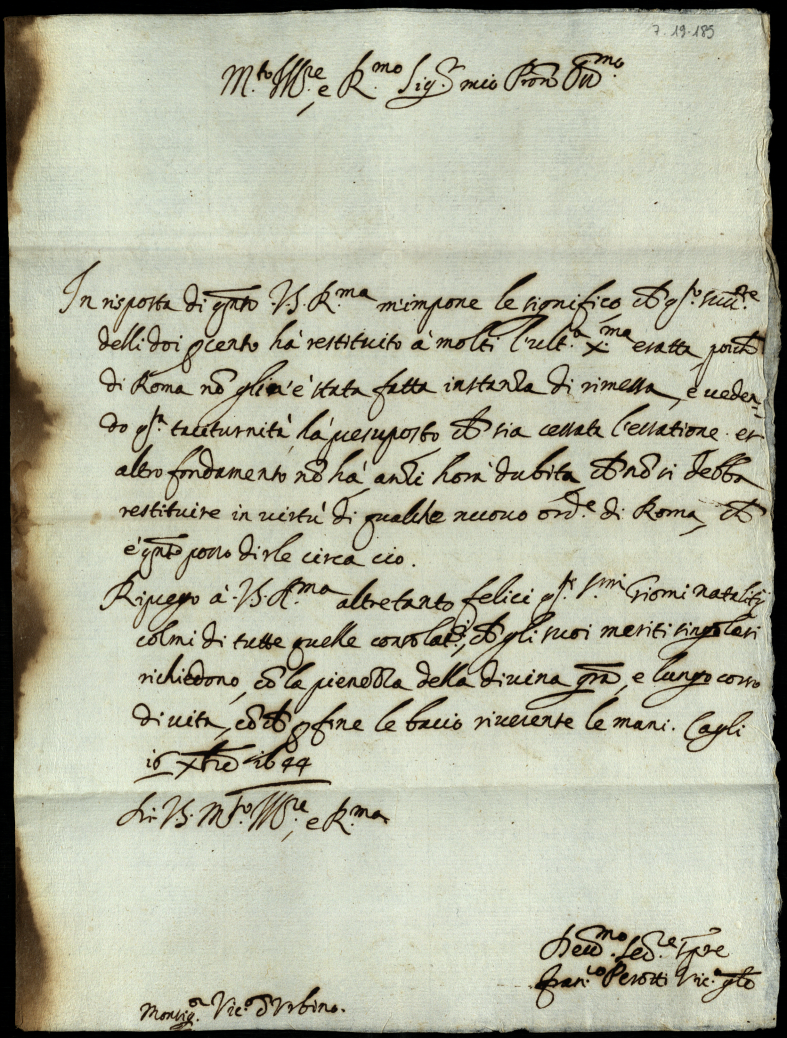 7.19.185
M.to Ill.re e R.mo Sig.r mio Pron
In risposta di q̃nto V.S. R.ma m'impone le significo, ch̃ q.sto
delli doi p cento hà restituito à molti l'ult.a X.ma esatta, poich̃
di Roma nõ gli n'è stata fatta instanza di rimessa, e veden-
do q.sta taciturnità, hà presuposto, ch̃ sia cessata l'essatione. et
altro fondamento nõ hà, anzi hora dubita, ch̃ nõ si debba
restituire in virtù di qualche nuovo ord.e di Roma, ch̃
è q̃nto posso dirle circa ciò.
Riprego à V.S. R.ma altretanto felici q.sti S.mi Giorni natalitij
colmi di tutte quelle consolat.i, ch̃ gli suoi meriti singolari
richiedono, cõ la pienezza della divina gr̃a, e lungo corso
di vita, cõ ch̃ p fine le bacio riverente le mani. Cagli
16 Xbrẽ 1644
Di V.S. M.to Ill.re e R.ma
Dev.mo Ser.re
Fran.co Perotti Vic.o gñle
Monsig.r Vic.o d'Urbino.